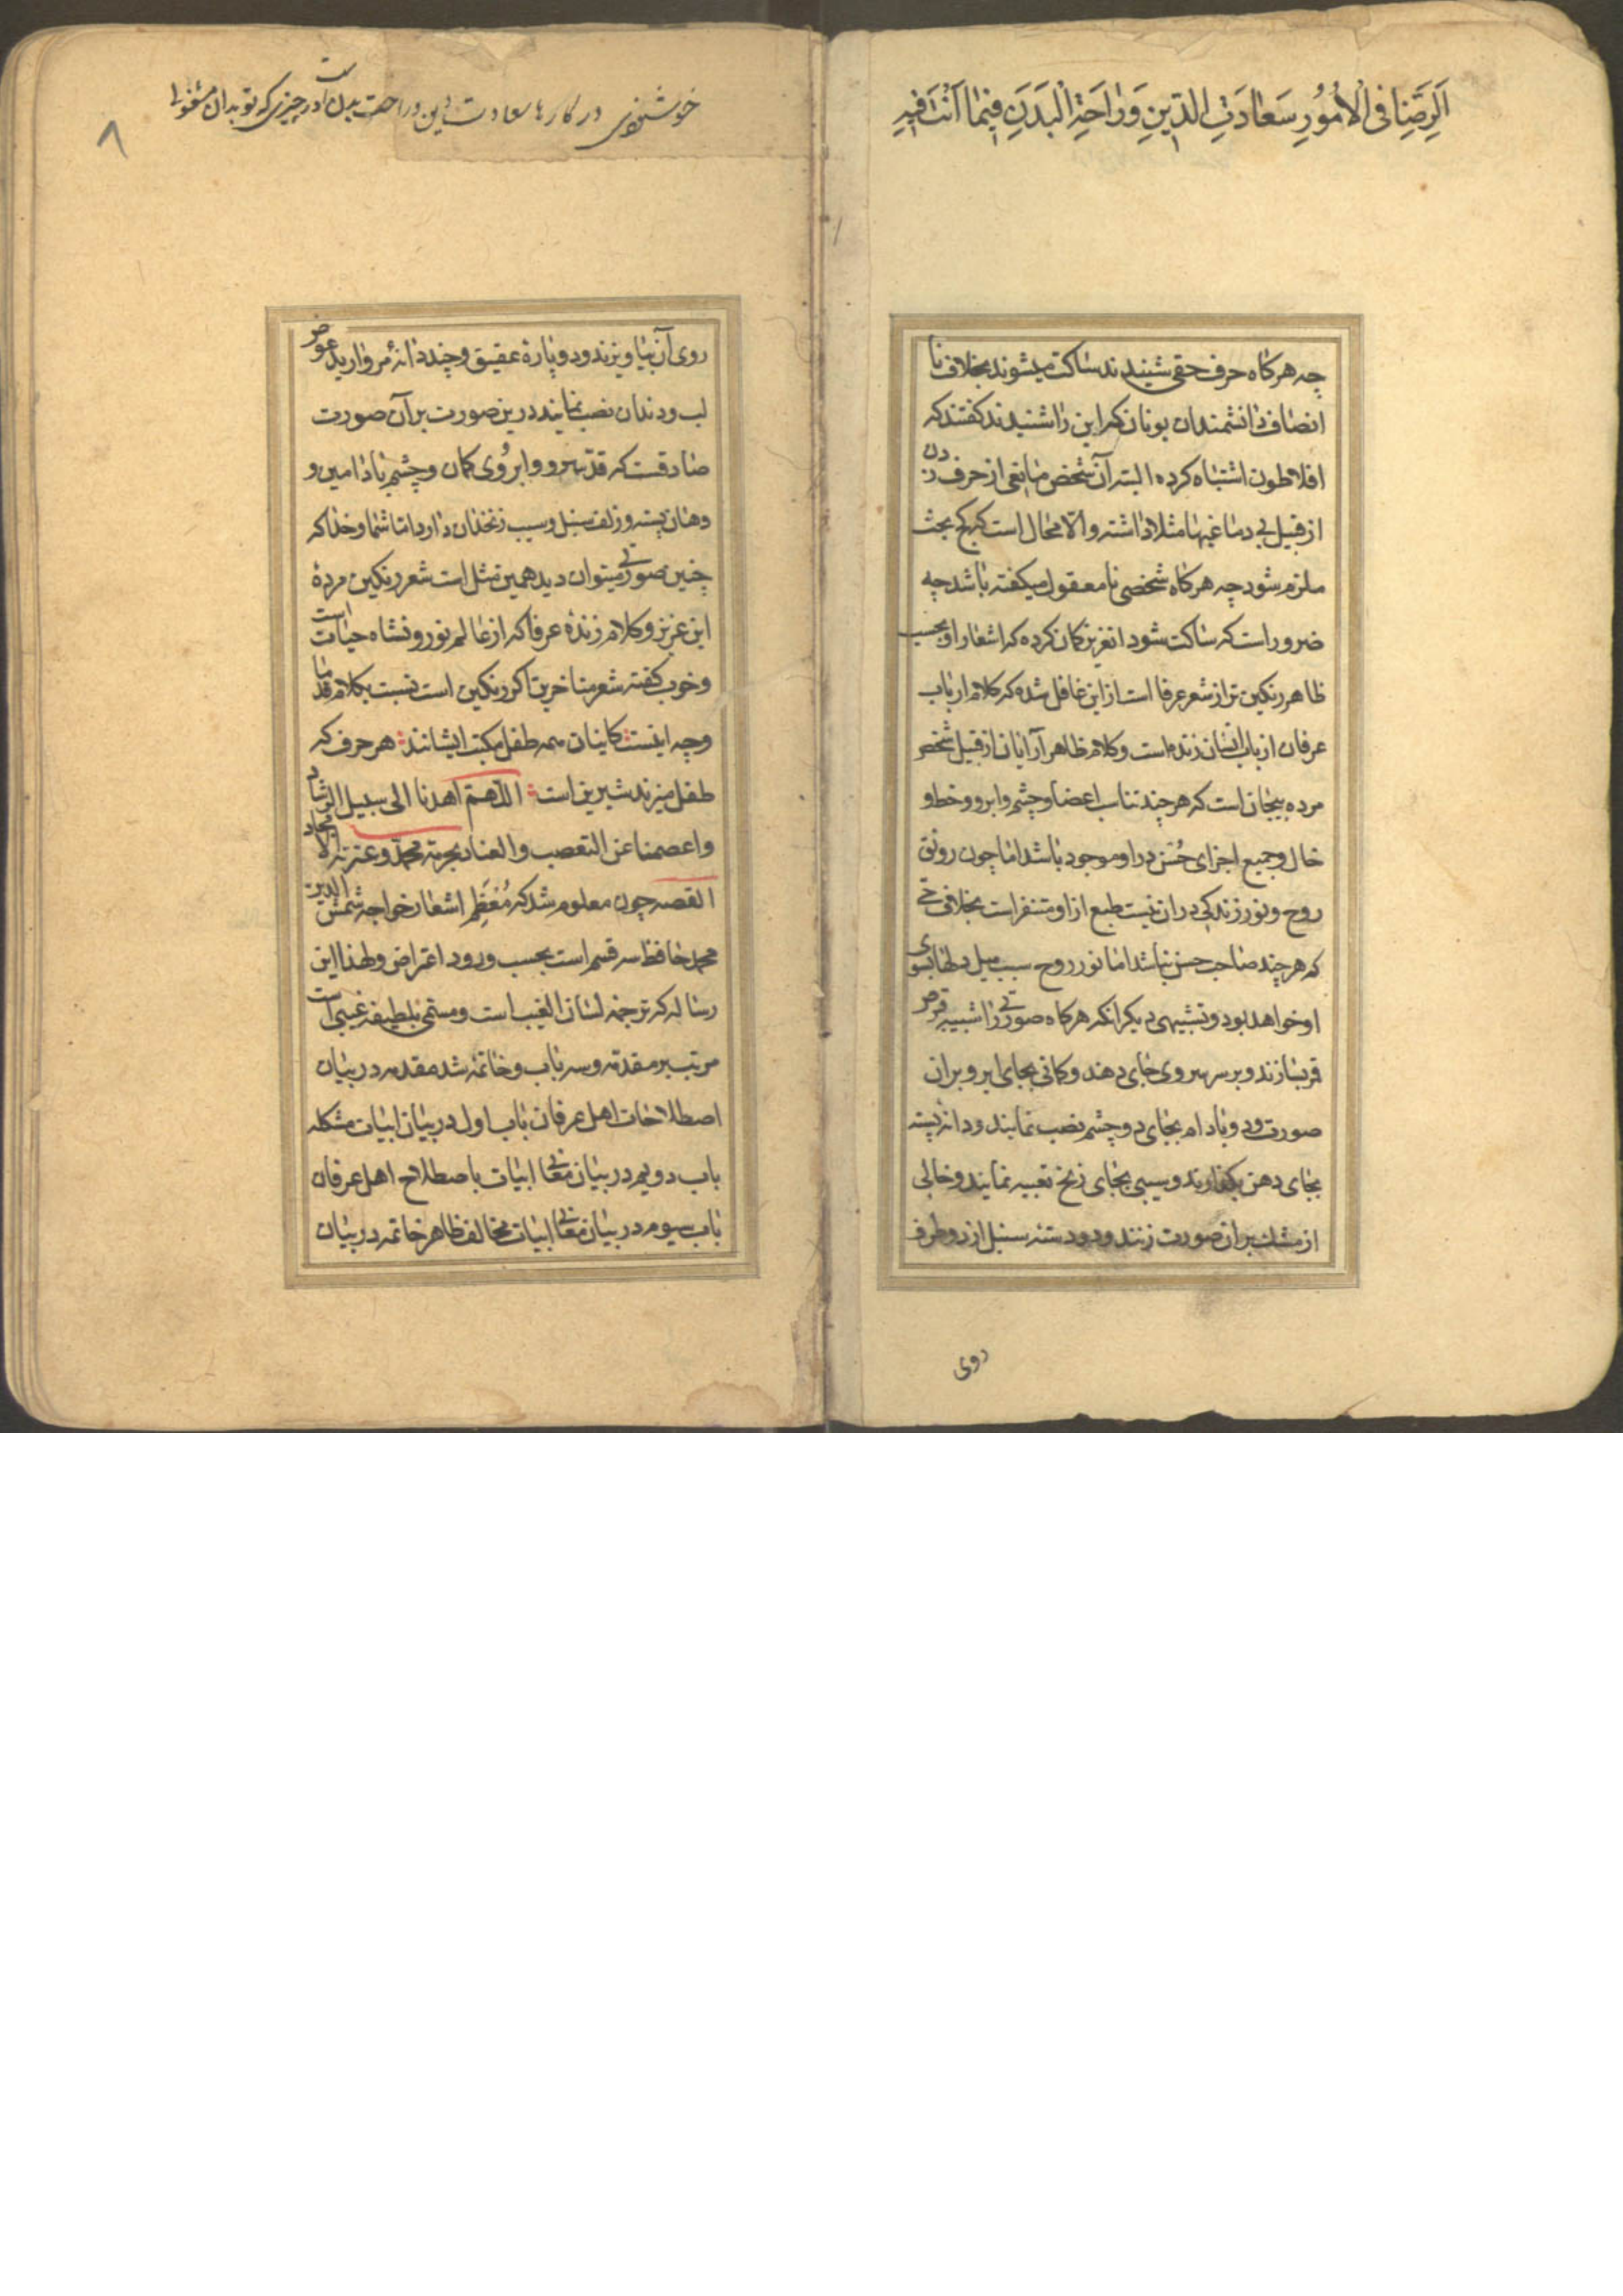 اَلرِّضَا فِی الْاُمُورِ سَعٰادَتِ الدّینِ وَرٰاحَةِ الْبَدَنِ فیمٰا اَنْتَ فیهِ
چه هرکاه حرف حقی شنیدند ساکت میشوند بخلاف نا
انصاف دانشمندان یونان که این را شنیدند کفتند که
افلاطون اشتباه کرده البته آن شخص مانعی از حرف زدن
از قبیل بی دماغیها مثلا داشته والا محال است که کج بحث
ملزم شود چه هرکاه شخصی نامعقول میکفته باشد چه
ضرور است که ساکت شود انعزیز کمان کرده که اشعار او بحسب
ظاهر رنکین تر از شعر عرفا است از این غافل شده که کلام ارباب
عرفان از باب انسان زنده است و کلام ظاهر آرایان از قبیل شخص
مرده بیجان است که هرچند تناسب اعضا و چشم و ابرو و خط و
خال و جمیع اجزای حُسن در او موجود باشد اما چون رونق
روح و نور زندکی در ان نیست طبع از او متنفر است بخلاف حی
که هرچند صاحب حسن نباشد اما نور روح سبب میل دلها بسوی
او خواهد بود و تشبیهی دیکر انکه هرکاه صورتی را شبیه قرص
قمر بسازند و بر سر سروی جای دهند و کمانی بجای ابرو بران
صورت و دو بادام بجای دو چشم نصب نمایند و دانه پسته
بجای دهن بکذارند و سیبی بجای زنخ تعبیه نمایند و خالی
از مشک بران صورت زنند و دو دسته سنبل از دو طرف
روی
خوشنودی در کارها سعادت دین و راحت بدن است در چیزی که تو بدان مشغولی
۸
روی آن بیاویزند و دو پارهٔ عقیق و چند دانهٔ مروارید عوض
لب و دندان نصب نمایند درین صورت بر آن صورت
صادقست که قد سرو و ابروی کمان و چشم بادامین و
دهان پسته و زلف سنبل و سیب زنخدان دارد اما شما و خدا که
چنین صورتی میتوان دید همین مثل است شعر رنکین مردهٔ
این عزیز و کلام زندهٔ عرفا که از عالم نور و نشاه حیات است
و خوب کفته شعر متاخرین اکر رنکین است نسبت بکلام قدما
وچه اینست کاینان همه طفل مکتب ایشانند هر حرف که
طفل میزند شیرین است اللّهم اهدنا الی سبیل الرشاد
واعصمنا عن التعصب والعناد بحرمة محمّد وعترته الامجاد
القصه چون معلوم شد که مُعَظَمِ اشعار خواجه شمس الدین
محمد حافظ سه قسم است بحسب ورود اعتراض ولهذا این
رساله که ترجمه لسان الغیب است و مسمّی بلطیفه غیبی است
مرتب بر مقدمه و سه باب و خاتمه شد مقدمه در بیان
اصطلاحات اهل عرفان باب اول در بیان ابیات مشکله
باب دویم در بیان معانی ابیات باصطلاح اهل عرفان
باب سیوم در بیان معانی ابیات مخالف ظاهر خاتمه در بیان